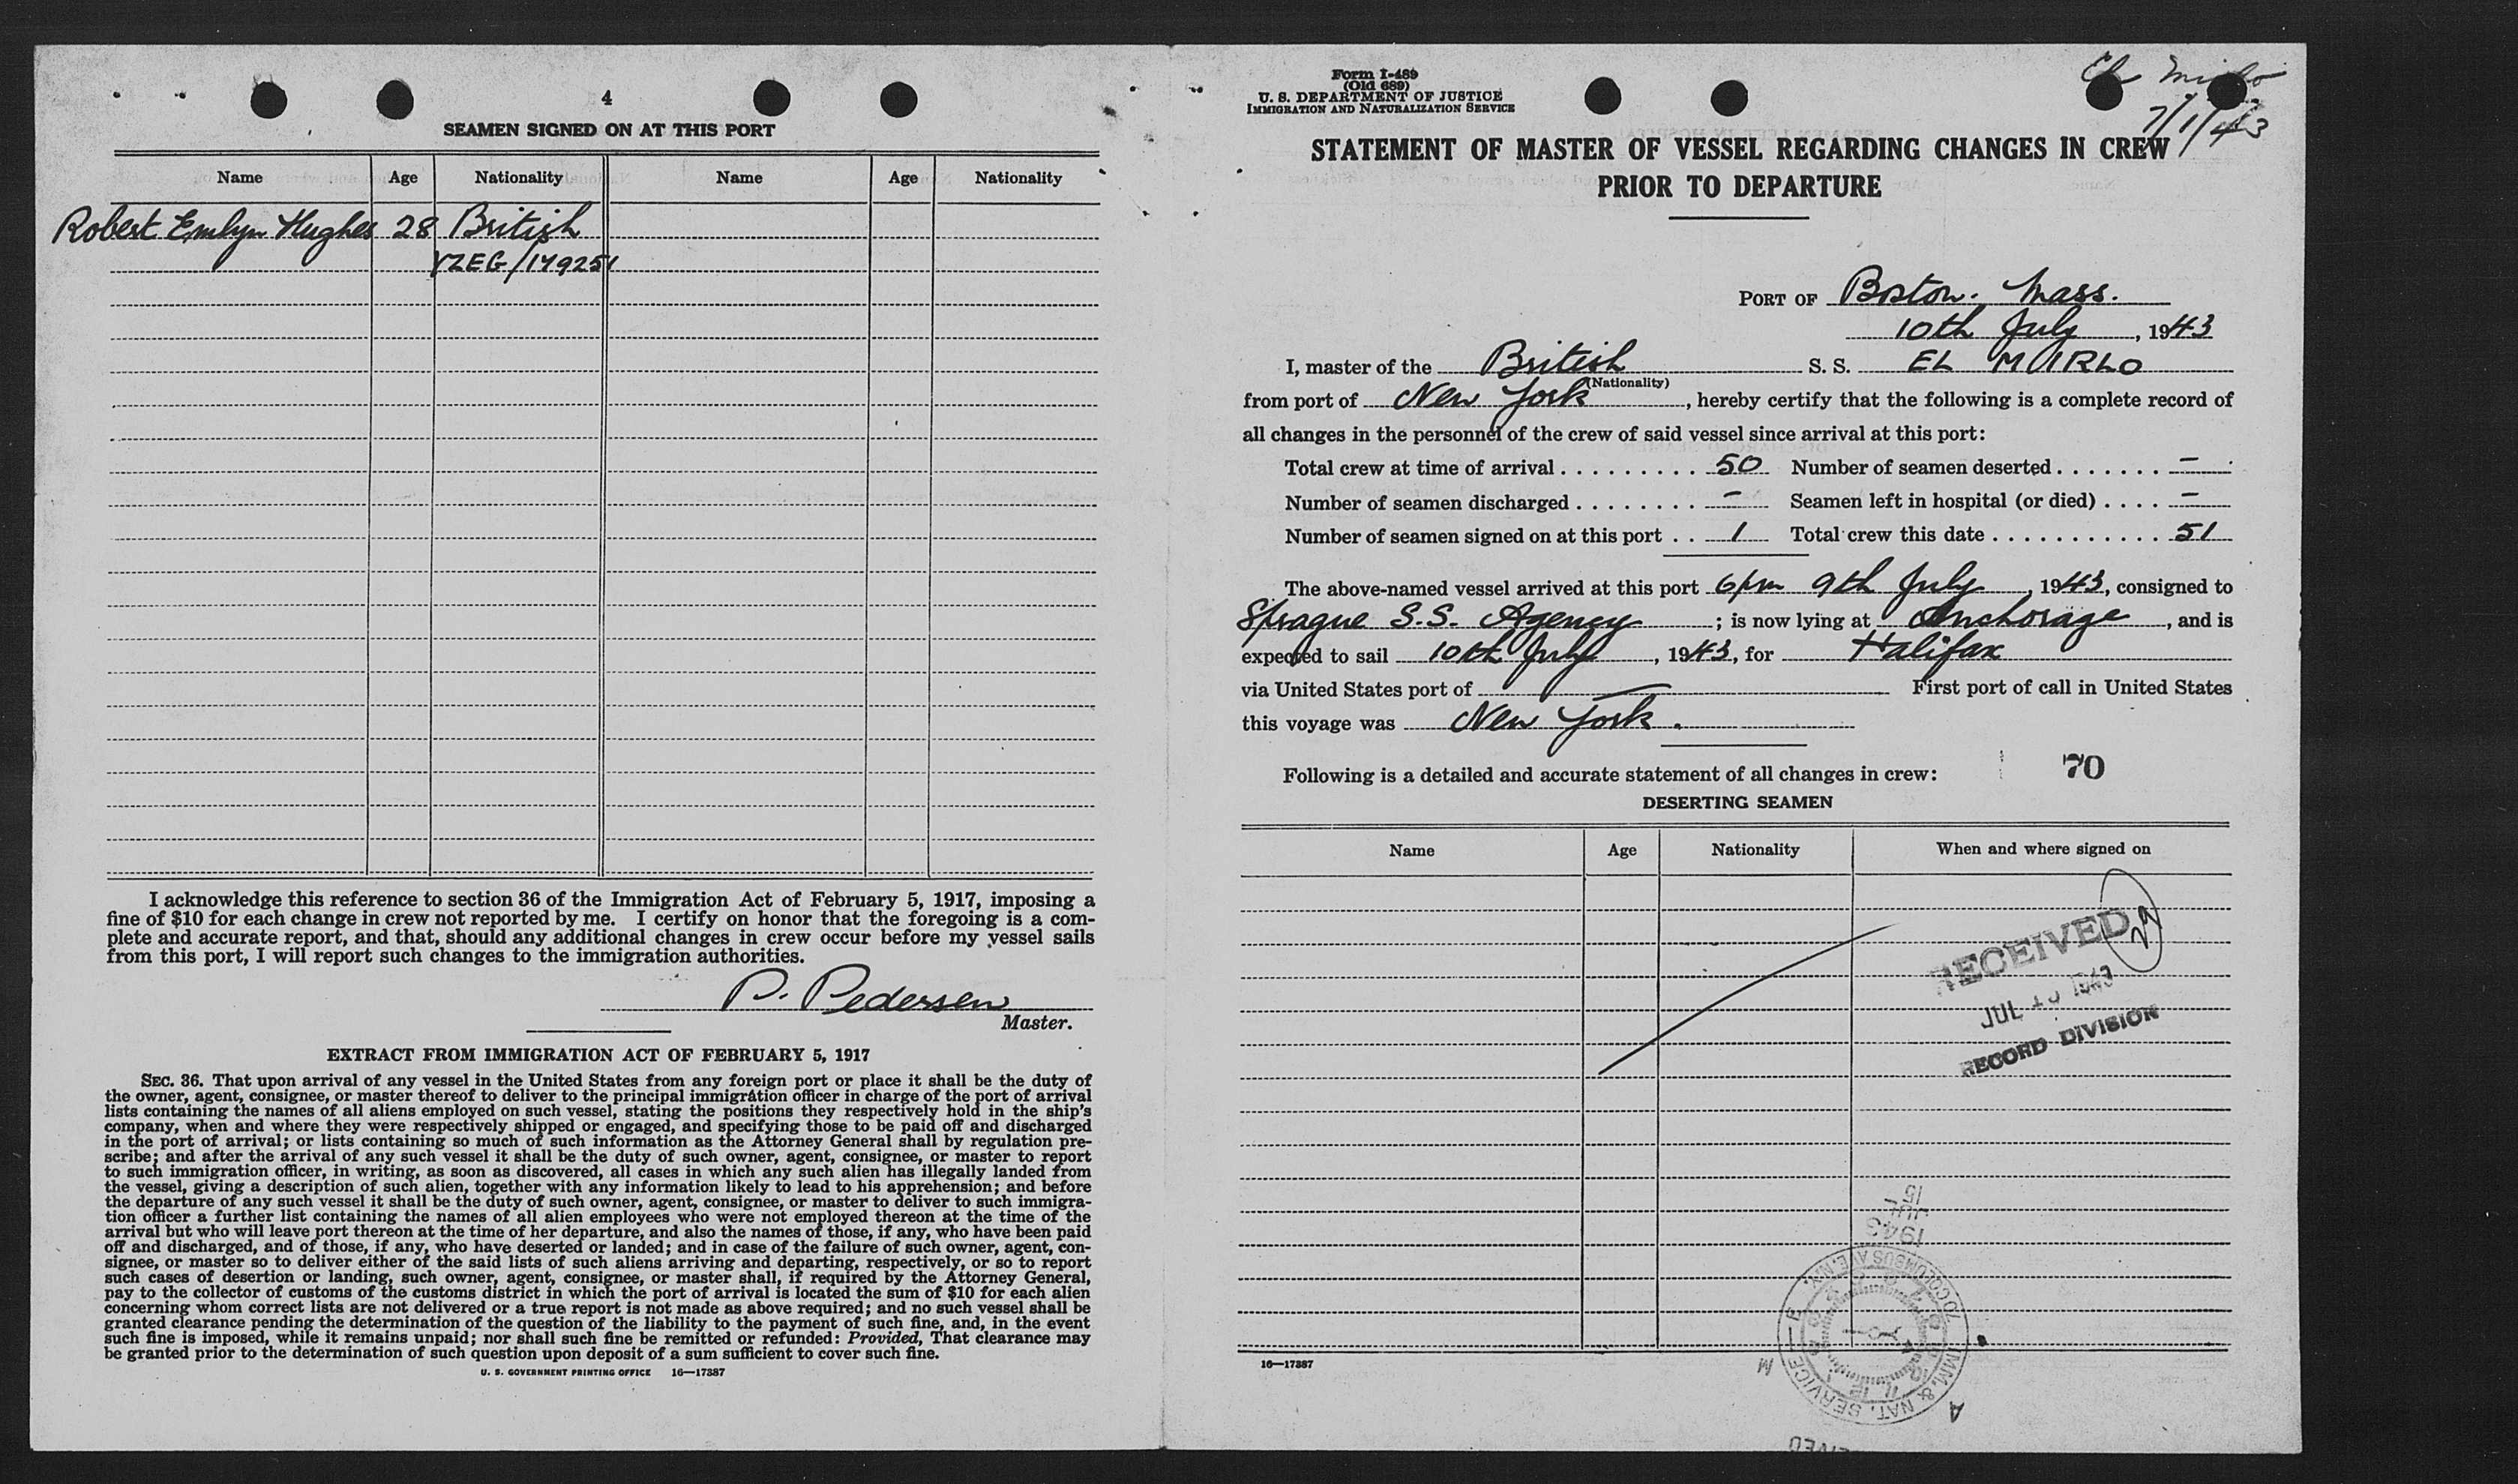 4
SEAMEN SIGNED ON AT THIS PORT
Name Age Nationality Name Age Nationality
Robert Emlyn Hughes 28 British
I acknowledge this reference to section 36 of the Immigration Act of February 5, 1917, imposing a
fine of $10 for each change in crew not reported by me. I certify on honor that the foregoing is a com-
plete and accurate report, and that, should any additional changes in crew occur before my vessel sails
from this port, I will report such changes to the immigration authorities.
P. Pedersen
Master.
EXTRACT FROM IMMIGRATION ACT OF FEBRUARY 5, 1917
SEC. 36. That upon arrival of any vessel in the United States from any foreign port or place it shall be the duty of
the owner, agent, consignee, or master thereof to deliver to the principal immigration officer in charge of the port of arrival
lists containing the names of all aliens employed on such vessel, stating the positions they respectively hold in the ship's
company, when and where they were respectively shipped or engaged, and specifying those to be paid off and discharged
in the port of arrival; or lists containing so much of such information as the Attorney General shall by regulation pre-
scribe; and after the arrival of any such vessel it shall be the duty of such owner, agent, consignee, or master to report
to such immigration officer, in writing, as soon as discovered, all cases in which any such alien has illegally landed from
the vessel, giving a description of such alien, together with any information likely to lead to his apprehension; and before
the departure of any such vessel it shall be the duty of such owner, agent, consignee, or master to deliver to such immigra-
tion officer a further list containing the names of all alien employees who were not employed thereon at the time of the
arrival but who will leave port thereon at the time of her departure, and also the names of those, if any, who have been paid
off and discharged, and of those, if any, who have deserted or landed; and in case of the failure of such owner, agent, con-
signee, or master so to deliver either of the said lists of such aliens arriving and departing, respectively, or so to report
such cases of desertion or landing, such owner, agent, consignee, or master shall, if required by the Attorney General,
pay to the collector of customs of the customs district in which the port of arrival is located the sum of $10 for each alien
concerning whom correct lists are not delivered or a true report is not made as above required; and no such vessel shall be
granted clearance pending the determination of the question of the liability to the payment of such fine, and, in the event
such fine is imposed, while it remains unpaid; nor shall such fine be remitted or refunded: Provided, That clearance may
be granted prior to the determination of such question upon deposit of a sum sufficient to cover such fine.
U. S. GOVERNMENT PRINTING OFFICE 16—17387
Form I-489
(Old 689)
U. S. DEPARTMENT OF JUSTICE
IMMIGRATION AND NATURALIZATION SERVICE
El
7/1/43
STATEMENT OF MASTER OF VESSEL REGARDING CHANGES IN CREW
PRIOR TO DEPARTURE
PORT OF Boston. Mass.
10th July, 1943
I, master of the British S. S. EL MIRLO
(Nationality)
from port of New York, hereby certify that the following is a complete record of
all changes in the personnel of the crew of said vessel since arrival at this port:
Total crew at time of arrival . . . . . . . . . 50 Number of seamen deserted . . . . . . . —
Number of seamen discharged . . . . . . . . — Seamen left in hospital (or died) . . . . —
Number of seamen signed on at this port . . 1 Total crew this date . . . . . . . . . . . 51
The above-named vessel arrived at this port 6pm 9th July, 1943, consigned to
Sprague S.S. Agency; is now lying at Anchorage, and is
expected to sail 10th July, 1943, for Halifax
via United States port of — First port of call in United States
this voyage was New York.
Following is a detailed and accurate statement of all changes in crew: 70
DESERTING SEAMEN
Name Age Nationality When and where signed on
RECEIVED
JUL 1943
RECORD DIVISION
JUL 15
1943
70 COLUMBUS AVE. N.Y.
IMM. & NAT. SERVICE
M
A
16—17387